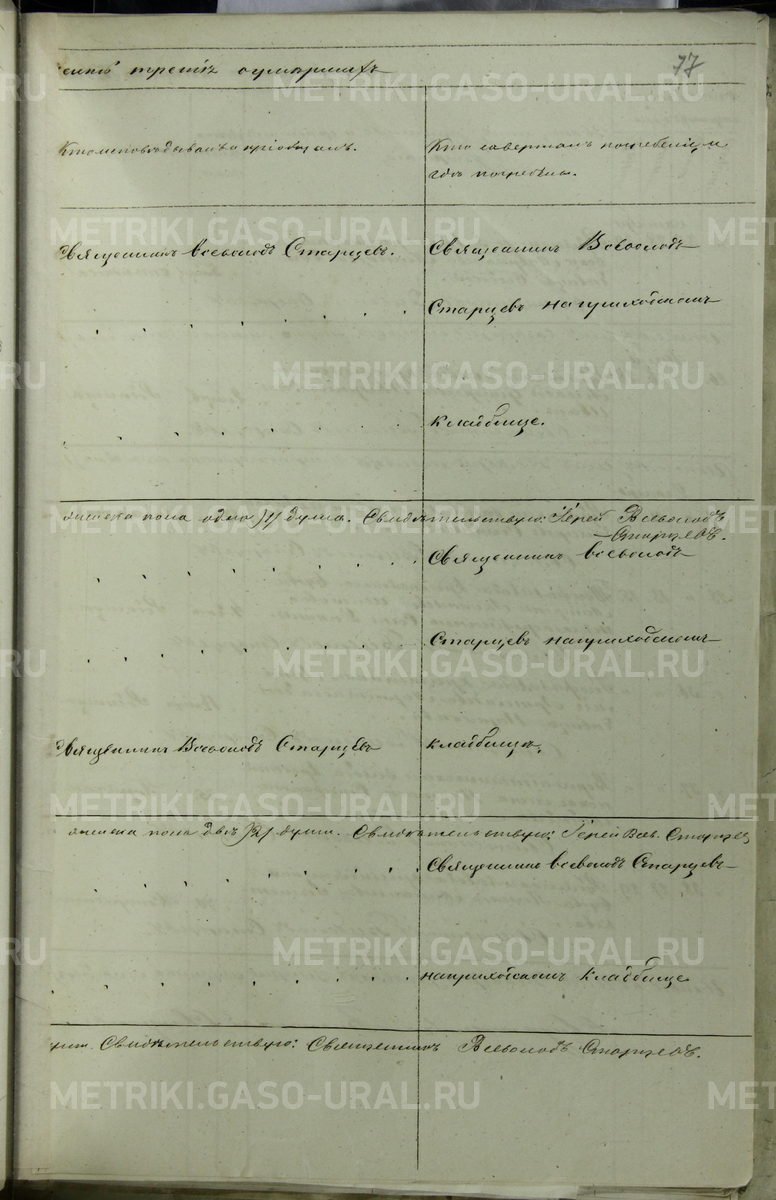 третiй о умершихъ
77
Кто исповѣдывалъ и прiобщалъ.
Кто совершалъ погребенiе и
гдѣ погребены.
Священникъ Всеволодъ Старцевъ.
Священникъ Всеволодъ
Старцевъ на приходскомъ
кладбище.
женска пола одна /1/ душа. Свидѣтельствую: Iерей Всеволодъ
Старцевъ.
Священникъ Всеволодъ
Старцевъ на приходскомъ
Священникъ Всеволодъ Старцевъ
кладбищѣ.
женска пола двѣ /2/ души. Свидѣтельствую: Iерей Всев. Старцев
Священникъ Всеволодъ Старцевъ
на приходскомъ кладбище
Свидѣтельствую: Священникъ Всеволодъ Старцевъ.
METRIKI.GASO-URAL.RU